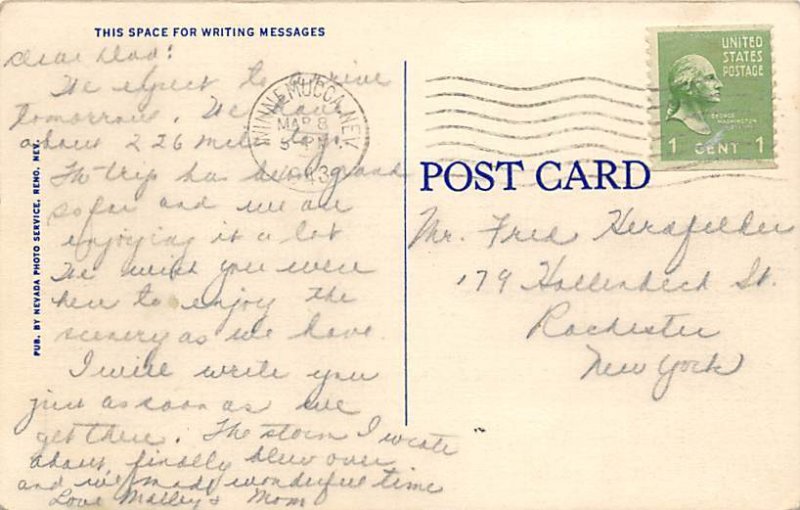 THIS SPACE FOR WRITING MESSAGES
Dear Dad:
We expect to arrive
tomorrow. We have
about 226 miles to go.
The trip has been grand
so far and we are
enjoying it a lot
We wish you were
here to enjoy the
scenery as we have.
I will write you
just as soon as we
get there. The storm I wrote
about, finally blew over
and we made wonderful time
Love Malley & Mom
PUB. BY NEVADA PHOTO SERVICE, RENO, NEV.
WINNEMUCCA, NEV.
MAR 8
UNITED
STATES
POSTAGE
GEORGE WASHINGTON
1 CENT 1
POST CARD
Mr. Fred Hersfelder
179 Hollenbeck St.
Rochester
New York